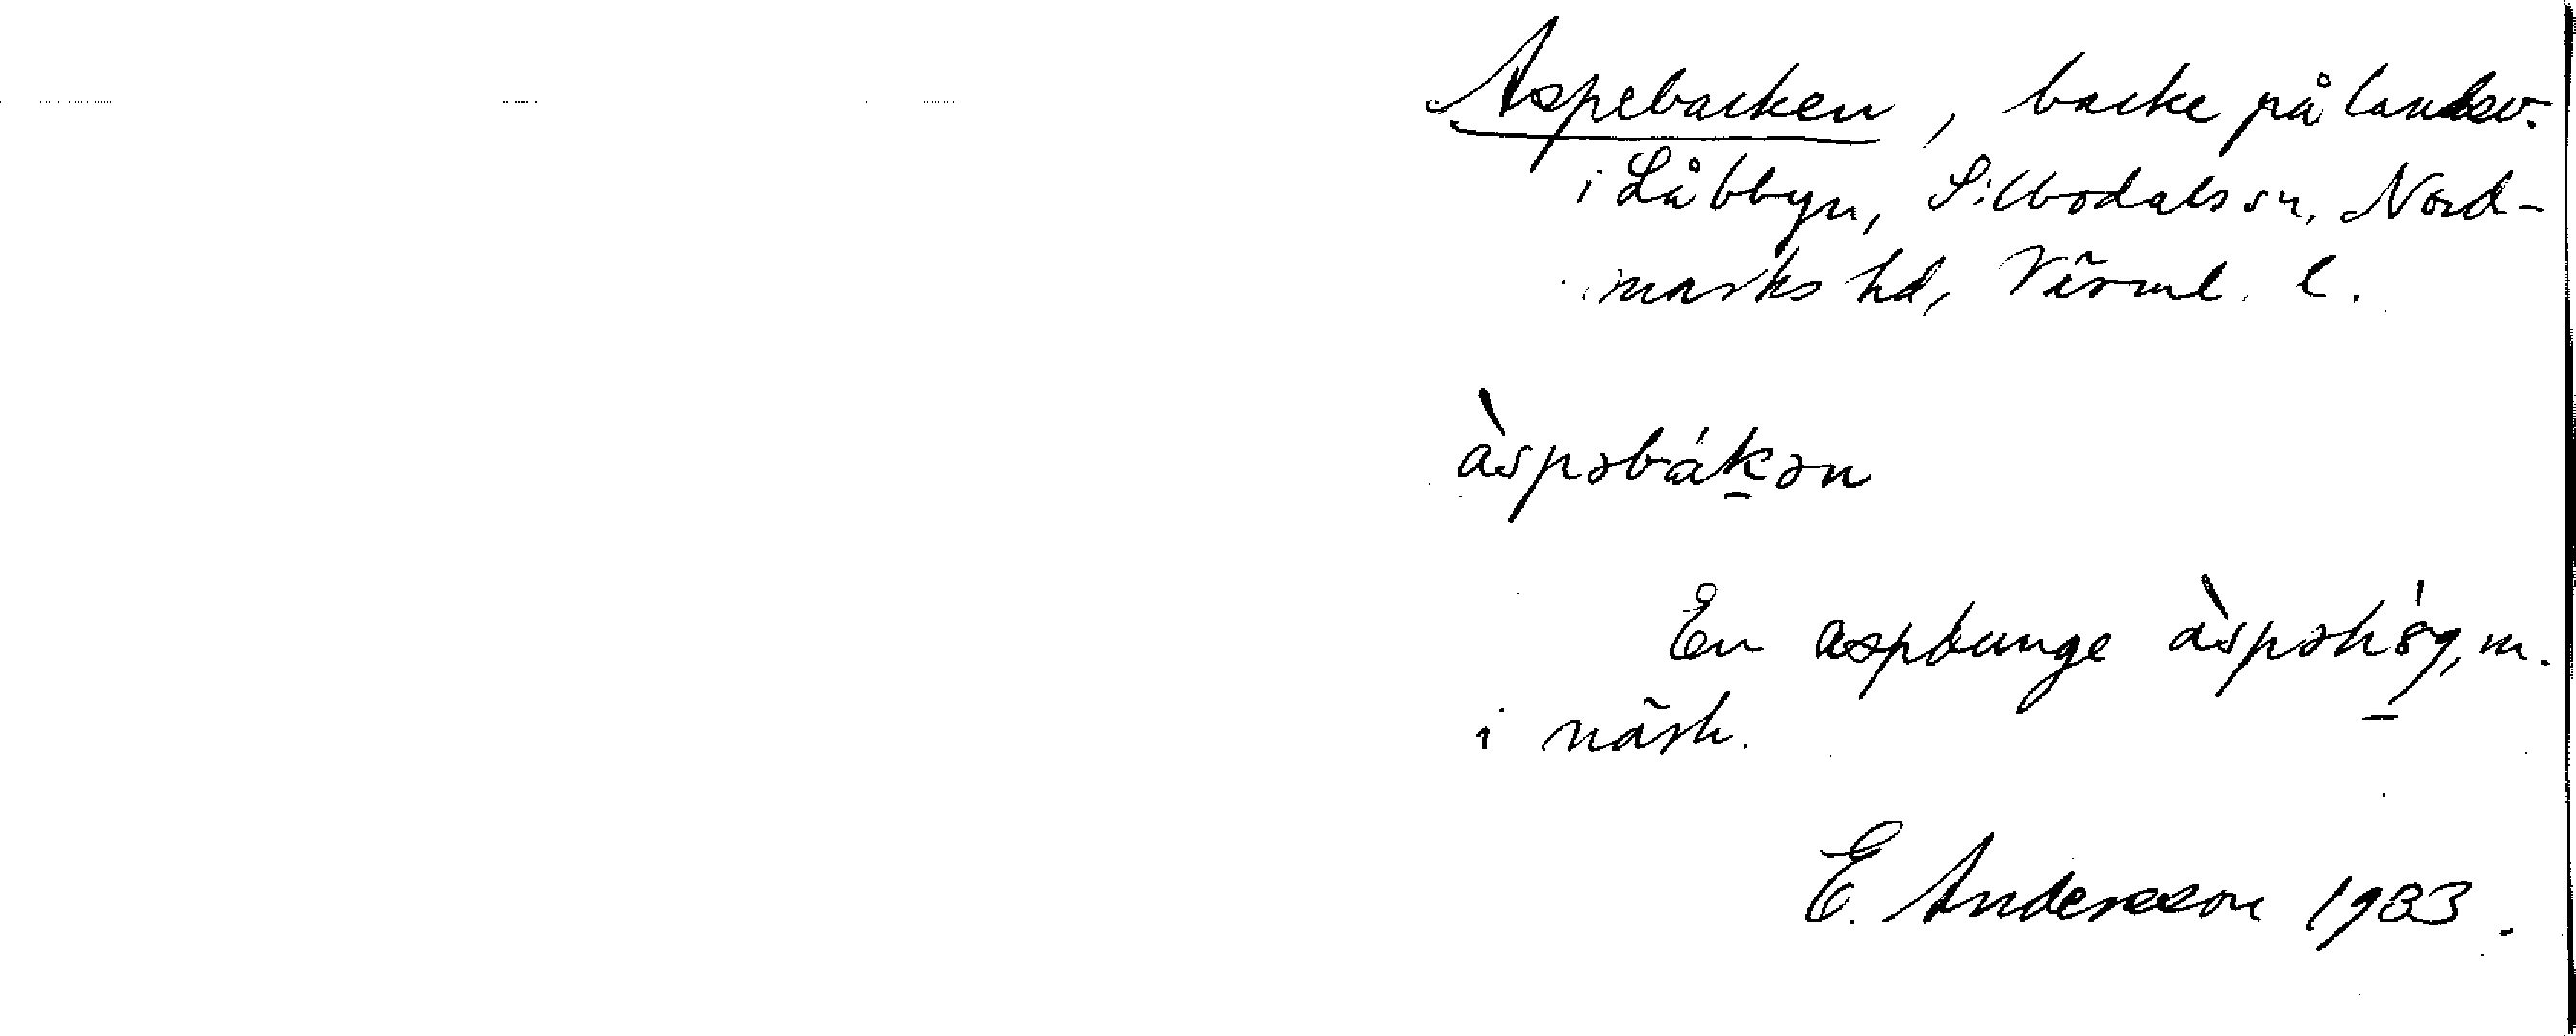 Aspebacken, backe på landsv.
i Låbbyn, Silbodals sn, Nord-
marks hd, Värml. l.
àspəbákən
En aspdunge àspəhög, m.
i närh.
E. Andersson 1933.